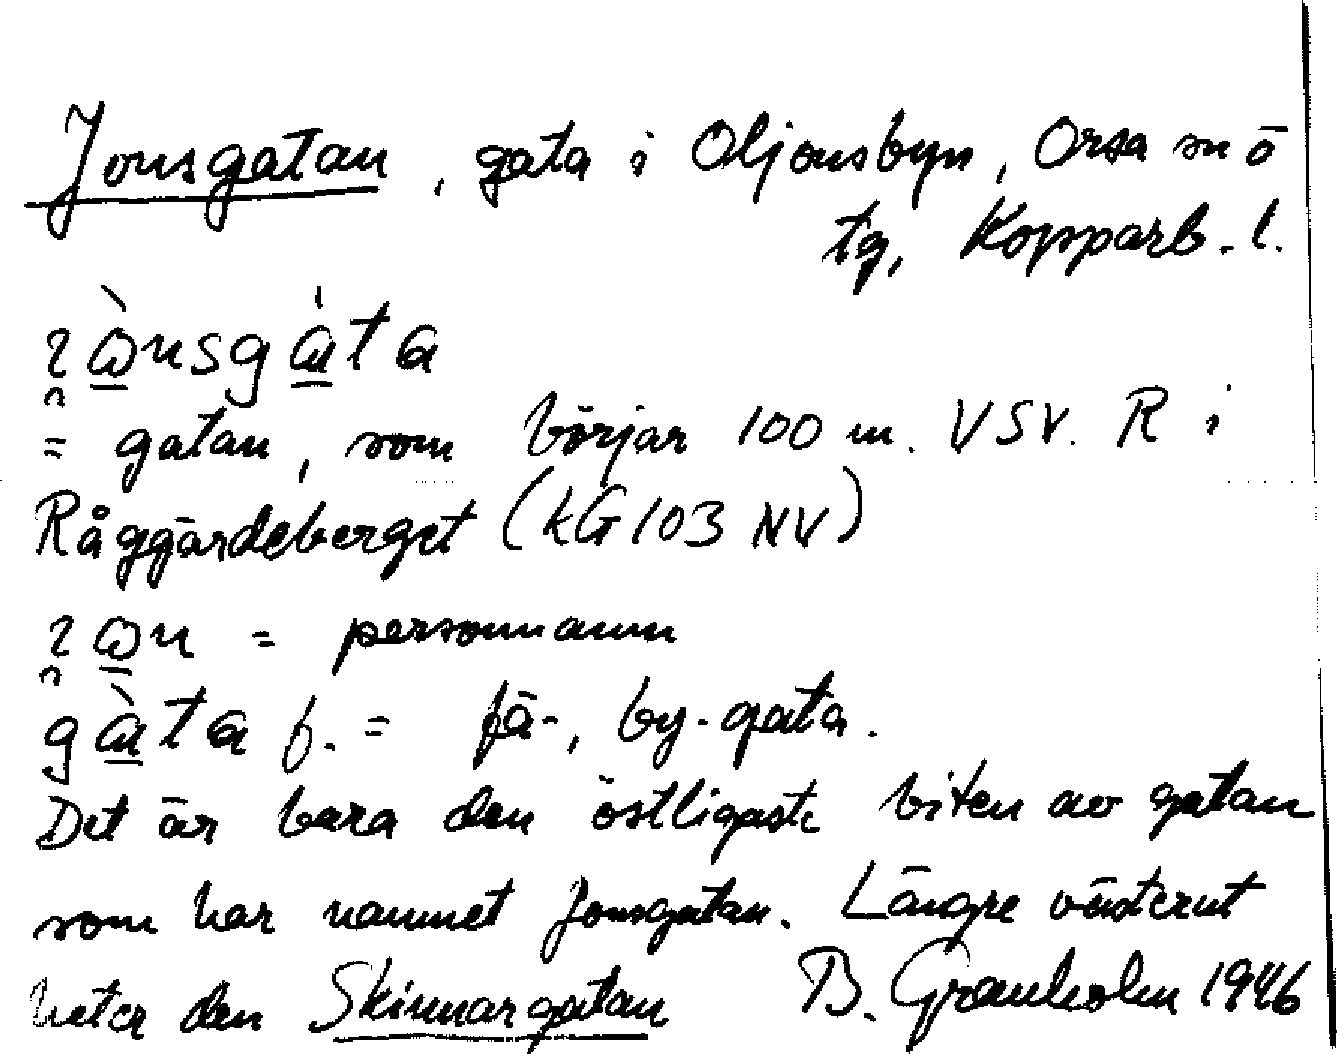 Jonsgatan, gata i Oljonsbyn, Orsa sn ö
tg, Kopparb. l.
= gatan, som börjar 100 m. VSV. R i
Råggärdeberget (KG 103 NV)
= personnamn
f. = fä-, by-gata.
Det är bara den östligaste biten av gatan
som har namnet Jonsgatan. Längre västerut
heter den Skinnargatan B. Granholm 1946